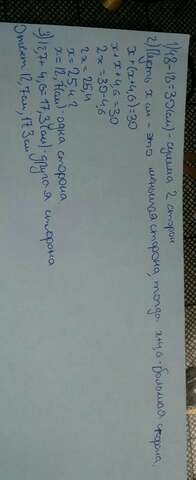 1) 48-18=30(см)-сумма 2 сторон
2) Пусть х см - это меньшая сторона, тогда х+4,6-большая сторона.
х+(х+4,6)=30
х+х+4,6=30
2х=30-4,6
2х=25,4
х=25,4:2
х=12,7(см)-одна сторона
3) 12,7+4,6=17,3(см)-другая сторона
Ответ: 12,7см, 17,3см